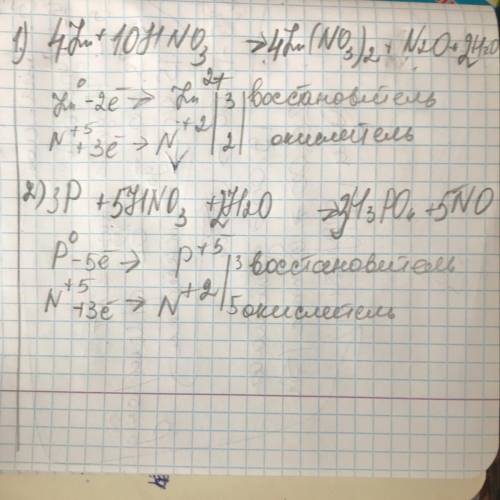 1) 4Zn + 10HNO₃ → 4Zn(NO₃)₂ + N₂O + 2H₂O
Zn⁰ -2ē → Zn²⁺ | 3 | восстановитель
N⁺⁵ +3ē → N⁺² | 2 | окислетель
2) 3P + 5HNO₃ + 2H₂O → 3H₃PO₄ + 5NO
P⁰ -5ē → P⁺⁵ | 3 восстановитель
N⁺⁵ +3ē → N⁺² | 5 окислетель